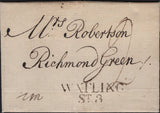 Mrs Robertson
Richmond Green
WATLING
St. 3